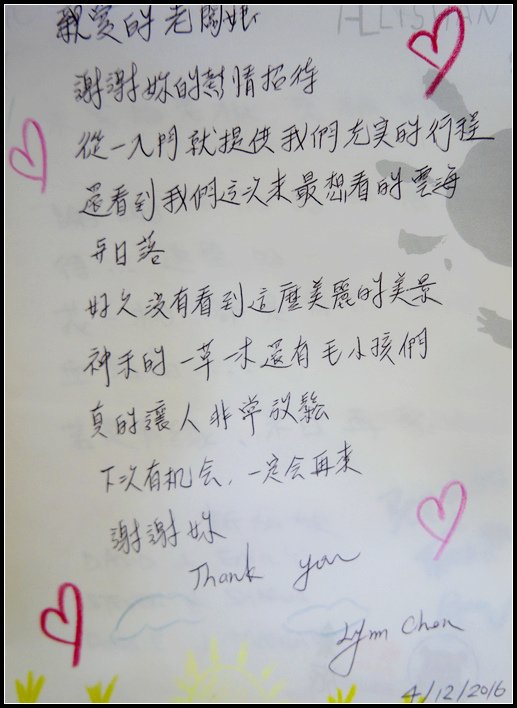 ALLISHAN
親愛的老闆娘
謝謝妳的熱情招待
從一入門就提供我們充实的行程
還看到我們這次來最想看的雲海
与日落
好久沒有看到這麼美麗的美景
神禾的一草一木還有毛小孩們
真的讓人非常放鬆
下次有机会，一定会再來
謝謝妳
Thank you
Lynn Chen
4/12/2016